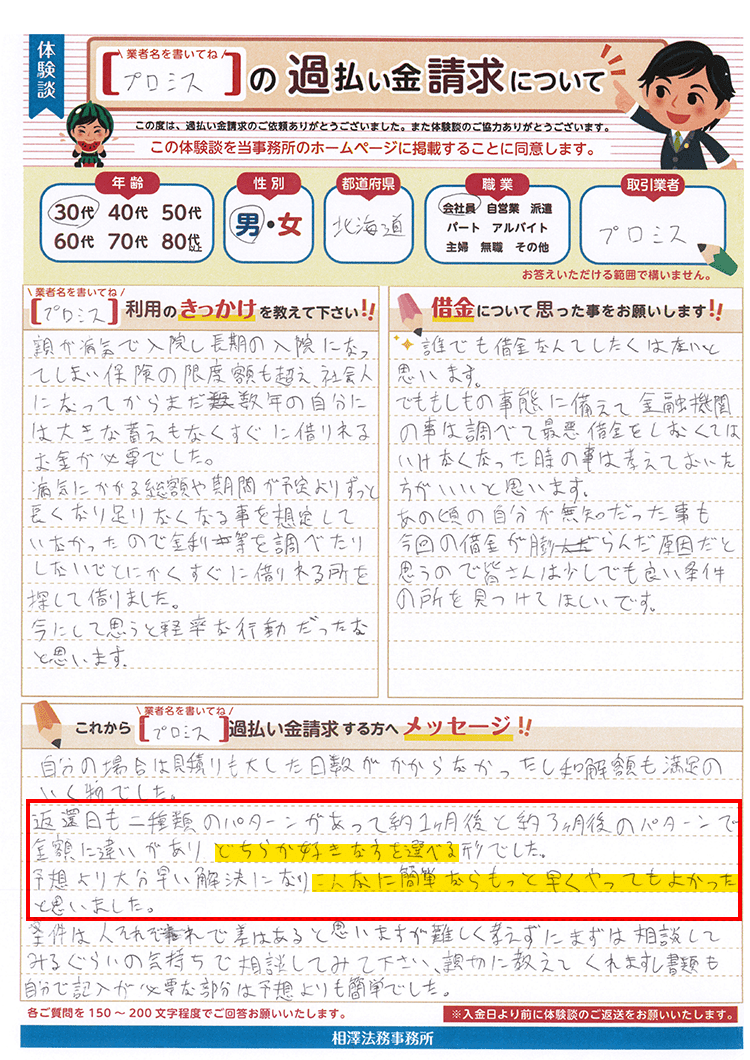 体験談
業者名を書いてね
[プロミス]の過払い金請求について
この度は、過払い金請求のご依頼ありがとうございました。また体験談のご協力ありがとうございます。
この体験談を当事務所のホームページに掲載することに同意します。
年齢
30代 40代 50代
60代 70代 80代以上
性別
男・女
都道府県
北海道
職業
会社員 自営業 派遣
パート アルバイト
主婦 無職 その他
取引業者
プロミス
お答えいただける範囲で構いません。
業者名を書いてね
[プロミス]利用のきっかけを教えて下さい!!
親が病気で入院し長期の入院になっ
てしまい保険の限度額も超え、社会人
になってからまだ数年の自分に
は大きな蓄えもなくすぐに借りれる
お金が必要でした。
病気にかかる総額や期間が予定よりずっと
長くなり足りなくなる事を想定して
いなかったので金利等を調べたり
しないでとにかくすぐに借りれる所を
探して借りました。
今にして思うと軽率な行動だったな
と思います。
借金について思った事をお願いします!!
誰でも借金なんてしたくはないと
思います。
でももしもの事態に備えて金融機関
の事は調べて最悪借金をしなくては
いけなくなった時の事は考えておいた
方がいいと思います。
あの頃の自分が無知だった事も
今回の借金が膨らんだ原因だと
思うので皆さんは少しでも良い条件
の所を見つけてほしいです。
業者名を書いてね
これから[プロミス]過払い金請求する方へメッセージ!!
自分の場合は見積りも大した日数がかからなかったし和解額も満足の
いく物でした。
返還日も二種類のパターンがあって約1ヶ月後と約3ヶ月後のパターンで
金額に違いがあり どちらか好きな方を選べる形でした。
予想より大分早い解決になりこんなに簡単ならもっと早くやってもよかった
と思いました。
条件は人それぞれで差はあると思いますが難しく考えずにまずは相談して
みるぐらいの気持ちで相談してみて下さい、親切に教えてくれますし書類も
自分で記入が必要な部分は予想よりも簡単でした。
各ご質問を150～200文字程度でご回答お願いいたします。
※入金日より前に体験談のご返送をお願いいたします。
相澤法務事務所